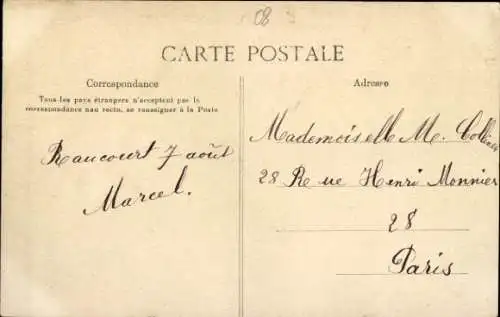 08
CARTE POSTALE
Correspondance
Tous les pays étrangers n'acceptent pas la
correspondance au recto, se renseigner à la Poste
Raucourt 7 août
Marcel.
Adresse
Mademoiselle M.
28 Rue Henri Monnier
28
Paris